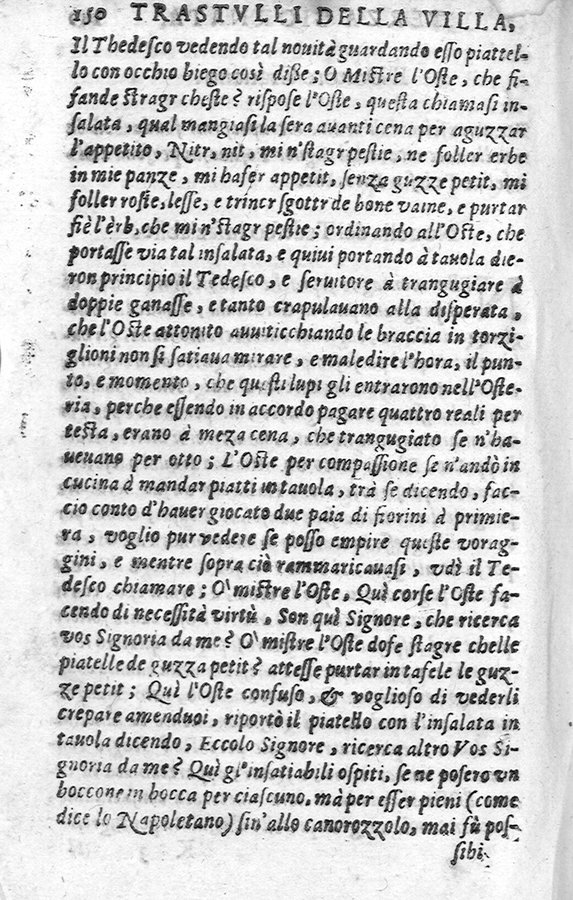 150 TRASTVLLI DELLA VILLA,
Il Thedesco vedendo tal nouità guardando esso piattel-
lo con occhio biego così disse; O Mistre l'Oste, che fi-
fande stragr cheste? rispose l'Oste, questa chiamasi in-
salata, qual mangiasi la sera auanti cena per aguzzar
l'appetito, Nitr, nit, mi n'stagr pestie, ne foller erbe
in mie panze, mi hafer appetit, senza guzze petit, mi
foller rostie, lesse, e trincr sgottr de bone vaine, e purtar
fiè l'èrb, che mi n'stagr pestie; ordinando all'Oste, che
portasse via tal insalata, e quiui portando à tauola die-
ron principio il Tedesco, e seruitore à trangugiare à
doppie ganasse, e tanto crapulauano alla disperata,
che l'Oste attonito auuiticchiando le braccia in torzi-
glioni non si satiaua mirare, e maledire l'hora, il pun-
to, e momento, che questi lupi gli entrarono nell'Oste-
ria, perche essendo in accordo pagare quattro reali per
testa, erano à meza cena, che trangugiato se n'ha-
ueuano per otto; L'Oste per compassione se n'andò in
cucina à mandar piatti in tauola, trà se dicendo, fac-
cio conto d'hauer giocato due paia di fiorini à primie-
ra, voglio pur vedere se posso empire queste vorag-
gini, e mentre sopra ciò rammaricauasi, vdì il Te-
desco chiamare; O mistre l'Oste, Quì corse l'Oste fa-
cendo di necessità virtù, Son quì Signore, che ricerca
vos Signoria da me? O mistre l'Oste dofe stagre chelle
piatelle de guzza petit? attesse purtar in tafele le guz-
ze petit; Quì l'Oste confuso, & voglioso di vederli
crepare amenduoi, riportò il piatello con l'insalata in
tauola dicendo, Eccolo Signore, ricerca altro Vos Si-
gnoria da me? Quì gl'insatiabili ospiti, se ne posero vn
boccone in bocca per ciascuno, mà per esser pieni (come
dice lo Napoletano) sin'allo canorozzolo, mai fù pos-
sibi-